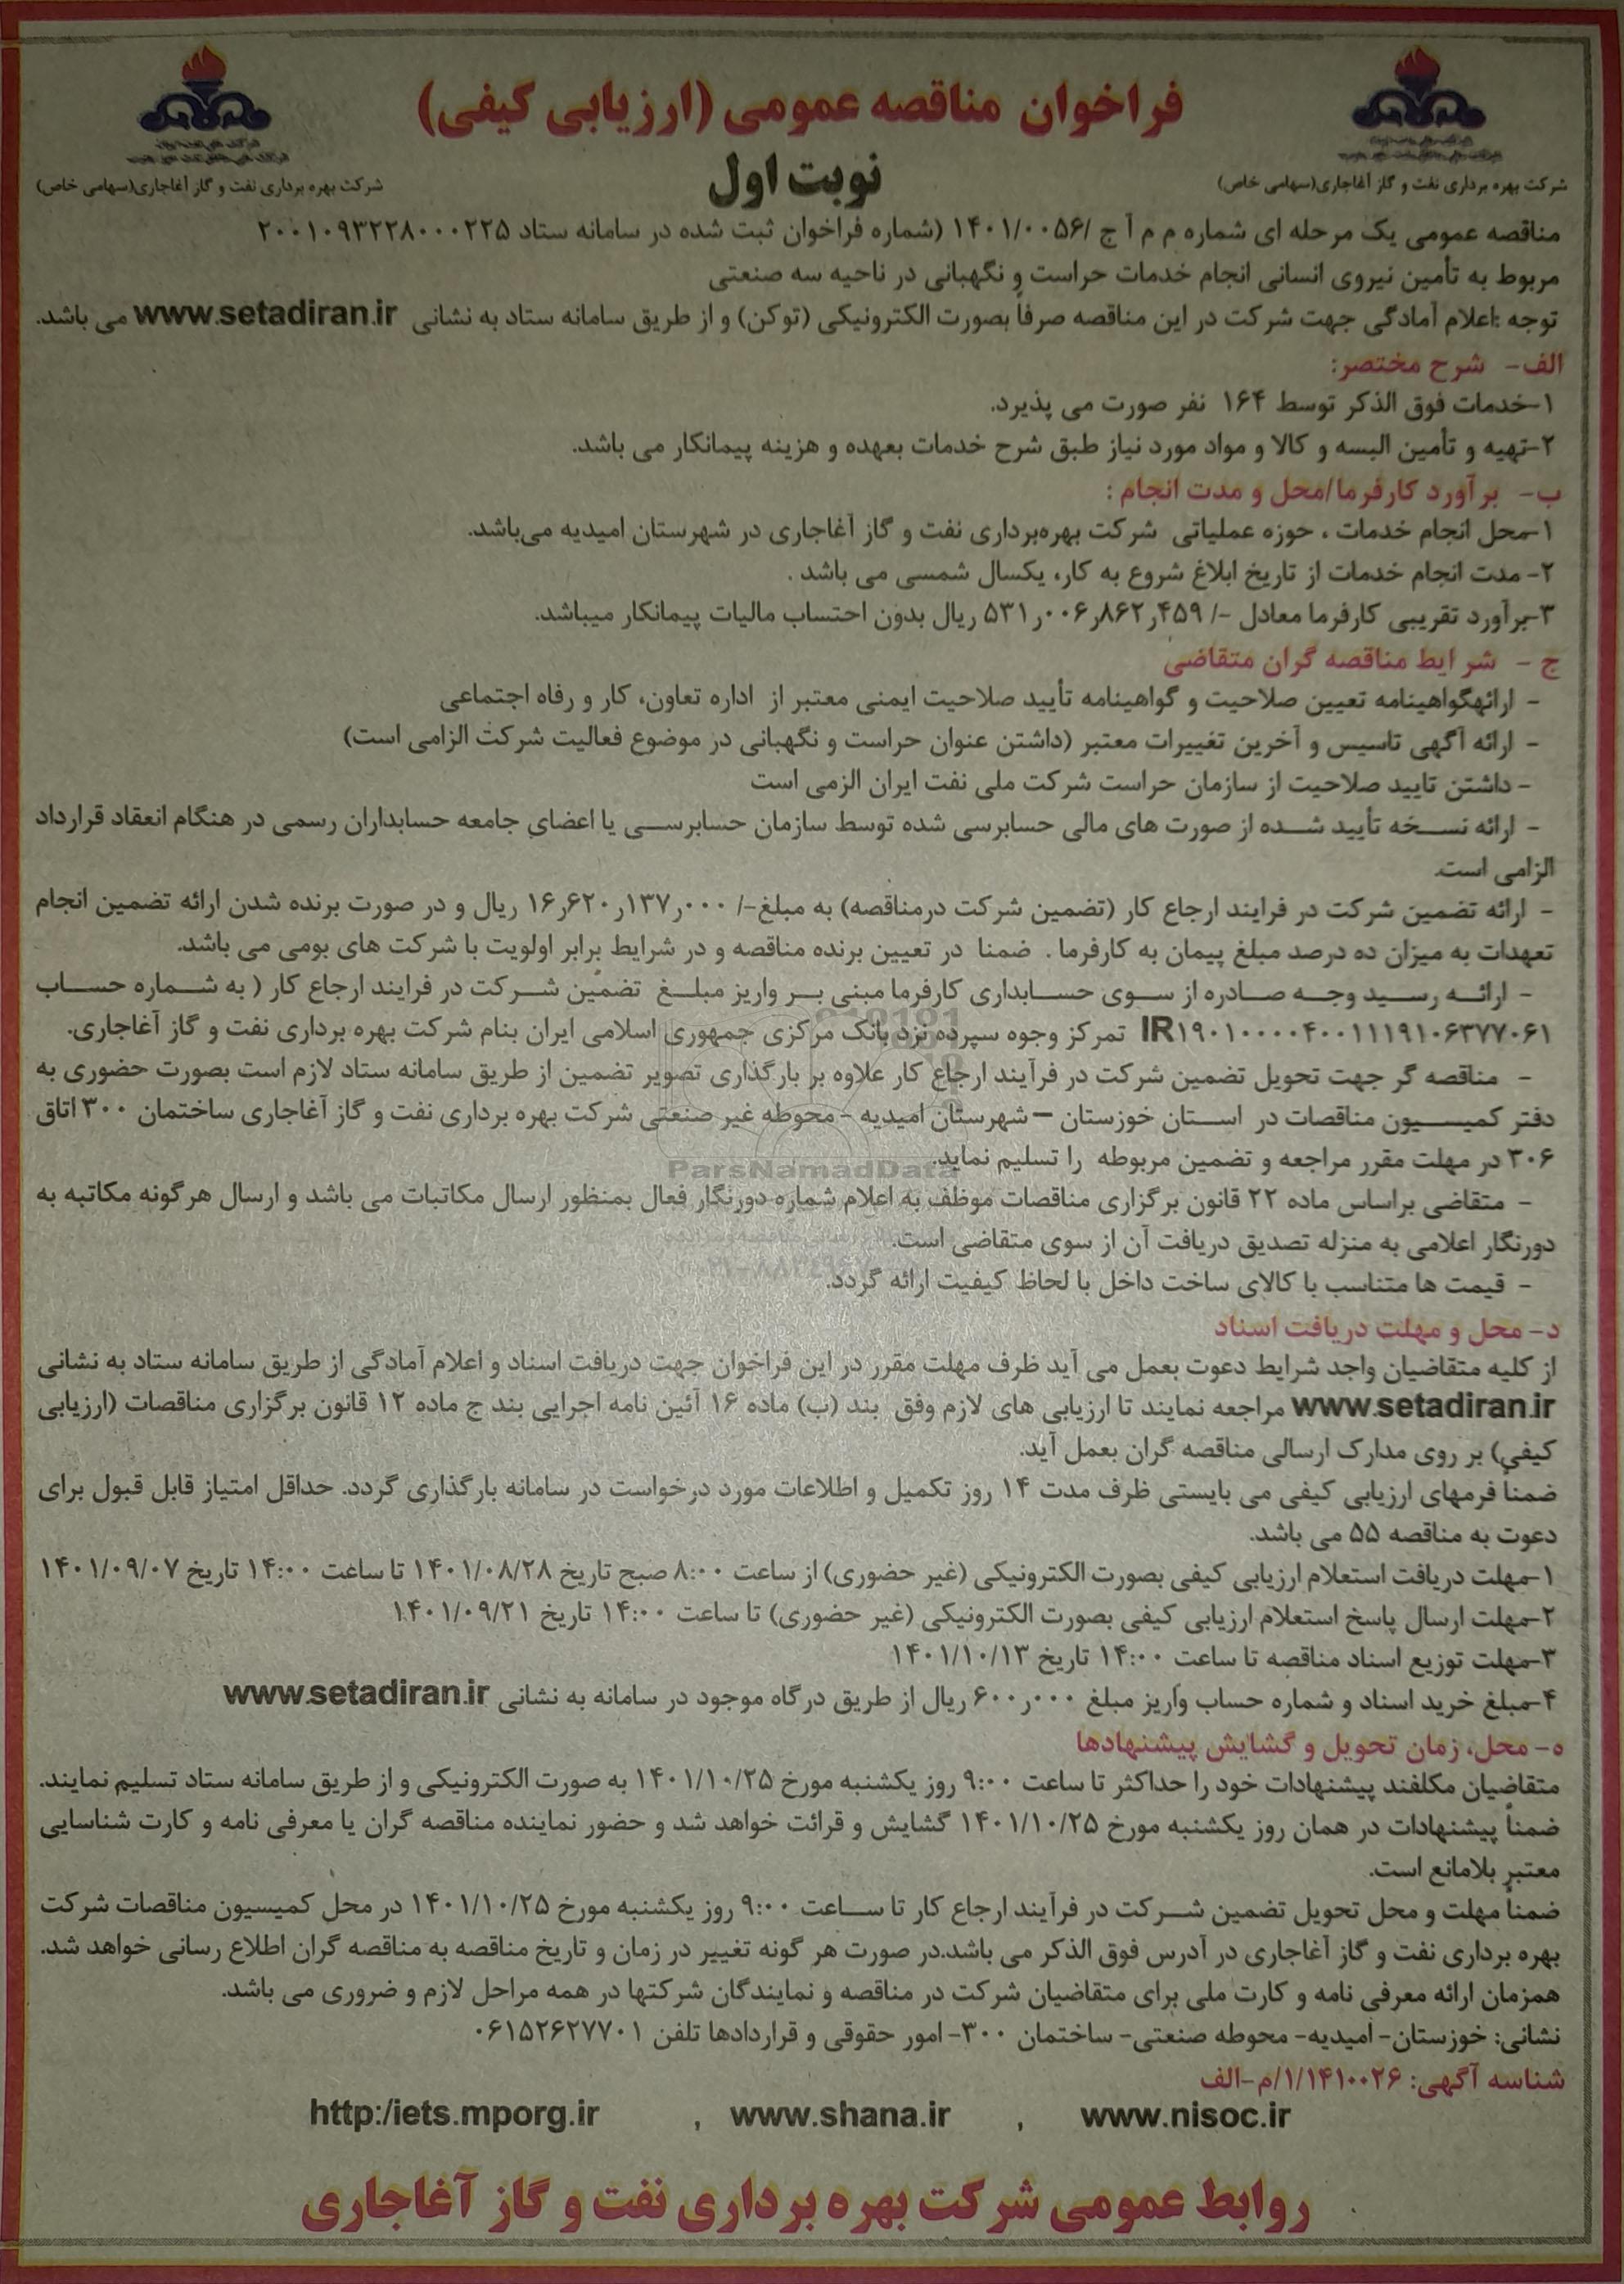 فراخوان مناقصه عمومی (ارزیابی کیفی)
نوبت اول
شرکت بهره برداری نفت و گاز آغاجاری(سهامی خاص)
شرکت بهره برداری نفت و گاز آغاجاری(سهامی خاص)
مناقصه عمومی یک مرحله ای شماره م م آ ج /۱۴۰۱/۰۰۵۶ (شماره فراخوان ثبت شده در سامانه ستاد ۲۰۰۱۰۹۳۲۲۸۰۰۰۲۲۵
مربوط به تأمین نیروی انسانی انجام خدمات حراست و نگهبانی در ناحیه سه صنعتی
توجه :اعلام آمادگی جهت شرکت در این مناقصه صرفاً بصورت الکترونیکی (توکن) و از طریق سامانه ستاد به نشانی www.setadiran.ir می باشد.
الف- شرح مختصر:
۱-خدمات فوق الذکر توسط ۱۶۴ نفر صورت می پذیرد.
۲-تهیه و تأمین البسه و کالا و مواد مورد نیاز طبق شرح خدمات بعهده و هزینه پیمانکار می باشد.
ب- برآورد کارفرما/محل و مدت انجام :
۱-محل انجام خدمات ، حوزه عملیاتی شرکت بهره‌برداری نفت و گاز آغاجاری در شهرستان امیدیه می‌باشد.
۲- مدت انجام خدمات از تاریخ ابلاغ شروع به کار، یکسال شمسی می باشد .
۳-برآورد تقریبی کارفرما معادل -/ ۵۳۱٫۰۰۶٫۸۶۲٫۴۵۹ ریال بدون احتساب مالیات پیمانکار میباشد.
ج - شرایط مناقصه گران متقاضی
- ارائهگواهینامه تعیین صلاحیت و گواهینامه تأیید صلاحیت ایمنی معتبر از اداره تعاون، کار و رفاه اجتماعی
- ارائه آگهی تاسیس و آخرین تغییرات معتبر (داشتن عنوان حراست و نگهبانی در موضوع فعالیت شرکت الزامی است)
- داشتن تایید صلاحیت از سازمان حراست شرکت ملی نفت ایران الزمی است
- ارائه نسخه تأیید شده از صورت های مالی حسابرسی شده توسط سازمان حسابرسی یا اعضای جامعه حسابداران رسمی در هنگام انعقاد قرارداد
الزامی است.
- ارائه تضمین شرکت در فرایند ارجاع کار (تضمین شرکت درمناقصه) به مبلغ-/ ۱۶٫۶۲۰٫۱۳۷٫۰۰۰ ریال و در صورت برنده شدن ارائه تضمین انجام
تعهدات به میزان ده درصد مبلغ پیمان به کارفرما . ضمنا در تعیین برنده مناقصه و در شرایط برابر اولویت با شرکت های بومی می باشد.
- ارائه رسید وجه صادره از سوی حسابداری کارفرما مبنی بر واریز مبلغ تضمین شرکت در فرایند ارجاع کار ( به شماره حساب
IR۱۹۰۱۰۰۰۰۴۰۰۱۱۱۹۱۰۶۳۷۷۰۶۱ تمرکز وجوه سپرده نزد بانک مرکزی جمهوری اسلامی ایران بنام شرکت بهره برداری نفت و گاز آغاجاری.
- مناقصه گر جهت تحویل تضمین شرکت در فرآیند ارجاع کار علاوه بر بارگذاری تصویر تضمین از طریق سامانه ستاد لازم است بصورت حضوری به
دفتر کمیسیون مناقصات در استان خوزستان – شهرستان امیدیه - محوطه غیر صنعتی شرکت بهره برداری نفت و گاز آغاجاری ساختمان ۳۰۰ اتاق
۳۰۶ در مهلت مقرر مراجعه و تضمین مربوطه را تسلیم نماید.
ParsNamadData
- متقاضی براساس ماده ۲۲ قانون برگزاری مناقصات موظف به اعلام شماره دورنگار فعال بمنظور ارسال مکاتبات می باشد و ارسال هرگونه مکاتبه به
دورنگار اعلامی به منزله تصدیق دریافت آن از سوی متقاضی است.
- قیمت ها متناسب با کالای ساخت داخل با لحاظ کیفیت ارائه گردد.
د- محل و مهلت دریافت اسناد
از کلیه متقاضیان واجد شرایط دعوت بعمل می آید ظرف مهلت مقرر در این فراخوان جهت دریافت اسناد و اعلام آمادگی از طریق سامانه ستاد به نشانی
www.setadiran.ir مراجعه نمایند تا ارزیابی های لازم وفق بند (ب) ماده ۱۶ آئین نامه اجرایی بند ج ماده ۱۲ قانون برگزاری مناقصات (ارزیابی
کیفی) بر روی مدارک ارسالی مناقصه گران بعمل آید.
ضمناً فرمهای ارزیابی کیفی می بایستی ظرف مدت ۱۴ روز تکمیل و اطلاعات مورد درخواست در سامانه بارگذاری گردد. حداقل امتیاز قابل قبول برای
دعوت به مناقصه ۵۵ می باشد.
۱-مهلت دریافت استعلام ارزیابی کیفی بصورت الکترونیکی (غیر حضوری) از ساعت ۸:۰۰ صبح تاریخ ۱۴۰۱/۰۸/۲۸ تا ساعت ۱۴:۰۰ تاریخ ۱۴۰۱/۰۹/۰۷
۲-مهلت ارسال پاسخ استعلام ارزیابی کیفی بصورت الکترونیکی (غیر حضوری) تا ساعت ۱۴:۰۰ تاریخ ۱۴۰۱/۰۹/۲۱
۳-مهلت توزیع اسناد مناقصه تا ساعت ۱۴:۰۰ تاریخ ۱۴۰۱/۱۰/۱۳
۴-مبلغ خرید اسناد و شماره حساب واریز مبلغ ۶۰۰٫۰۰۰ ریال از طریق درگاه موجود در سامانه به نشانی www.setadiran.ir
ه- محل، زمان تحویل و گشایش پیشنهادها
متقاضیان مکلفند پیشنهادات خود را حداکثر تا ساعت ۹:۰۰ روز یکشنبه مورخ ۱۴۰۱/۱۰/۲۵ به صورت الکترونیکی و از طریق سامانه ستاد تسلیم نمایند.
ضمناً پیشنهادات در همان روز یکشنبه مورخ ۱۴۰۱/۱۰/۲۵ گشایش و قرائت خواهد شد و حضور نماینده مناقصه گران یا معرفی نامه و کارت شناسایی
معتبر بلامانع است.
ضمناً مهلت و محل تحویل تضمین شرکت در فرآیند ارجاع کار تا ساعت ۹:۰۰ روز یکشنبه مورخ ۱۴۰۱/۱۰/۲۵ در محل کمیسیون مناقصات شرکت
بهره برداری نفت و گاز آغاجاری در آدرس فوق الذکر می باشد.در صورت هر گونه تغییر در زمان و تاریخ مناقصه به مناقصه گران اطلاع رسانی خواهد شد.
همزمان ارائه معرفی نامه و کارت ملی برای متقاضیان شرکت در مناقصه و نمایندگان شرکتها در همه مراحل لازم و ضروری می باشد.
نشانی: خوزستان- امیدیه- محوطه صنعتی- ساختمان ۳۰۰- امور حقوقی و قراردادها تلفن ۰۶۱۵۲۶۲۷۷۰۱
شناسه آگهی: ۱/۱۴۱۰۰۲۶/م-الف
http:/iets.mporg.ir , www.shana.ir , www.nisoc.ir
روابط عمومی شرکت بهره برداری نفت و گاز آغاجاری